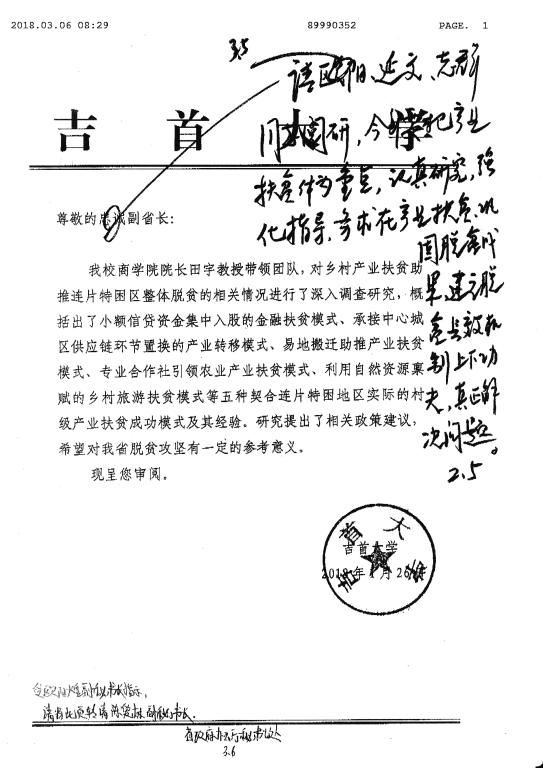 2018.03.06 08:29 89990352 PAGE. 1
3.5
请欧阳、延文、志群
同志阅研，今年要把产业
扶贫作为重点，认真研究，强
化指导，务求在产业扶贫、巩
固脱贫成
果、建立脱
贫长效机
制上下功
夫，真正解
决问题。
2.5
吉首大学
尊敬的忠诚副省长：
我校商学院院长田宇教授带领团队，对乡村产业扶贫助
推连片特困区整体脱贫的相关情况进行了深入调查研究，概
括出了小额信贷资金集中入股的金融扶贫模式、承接中心城
区供应链环节置换的产业转移模式、易地搬迁助推产业扶贫
模式、专业合作社引领农业产业扶贫模式、利用自然资源禀
赋的乡村旅游扶贫模式等五种契合连片特困地区实际的村
级产业扶贫成功模式及其经验。研究提出了相关政策建议，
希望对我省脱贫攻坚有一定的参考意义。
现呈您审阅。
吉首大学
吉首大学
2018年1月26日
3.6